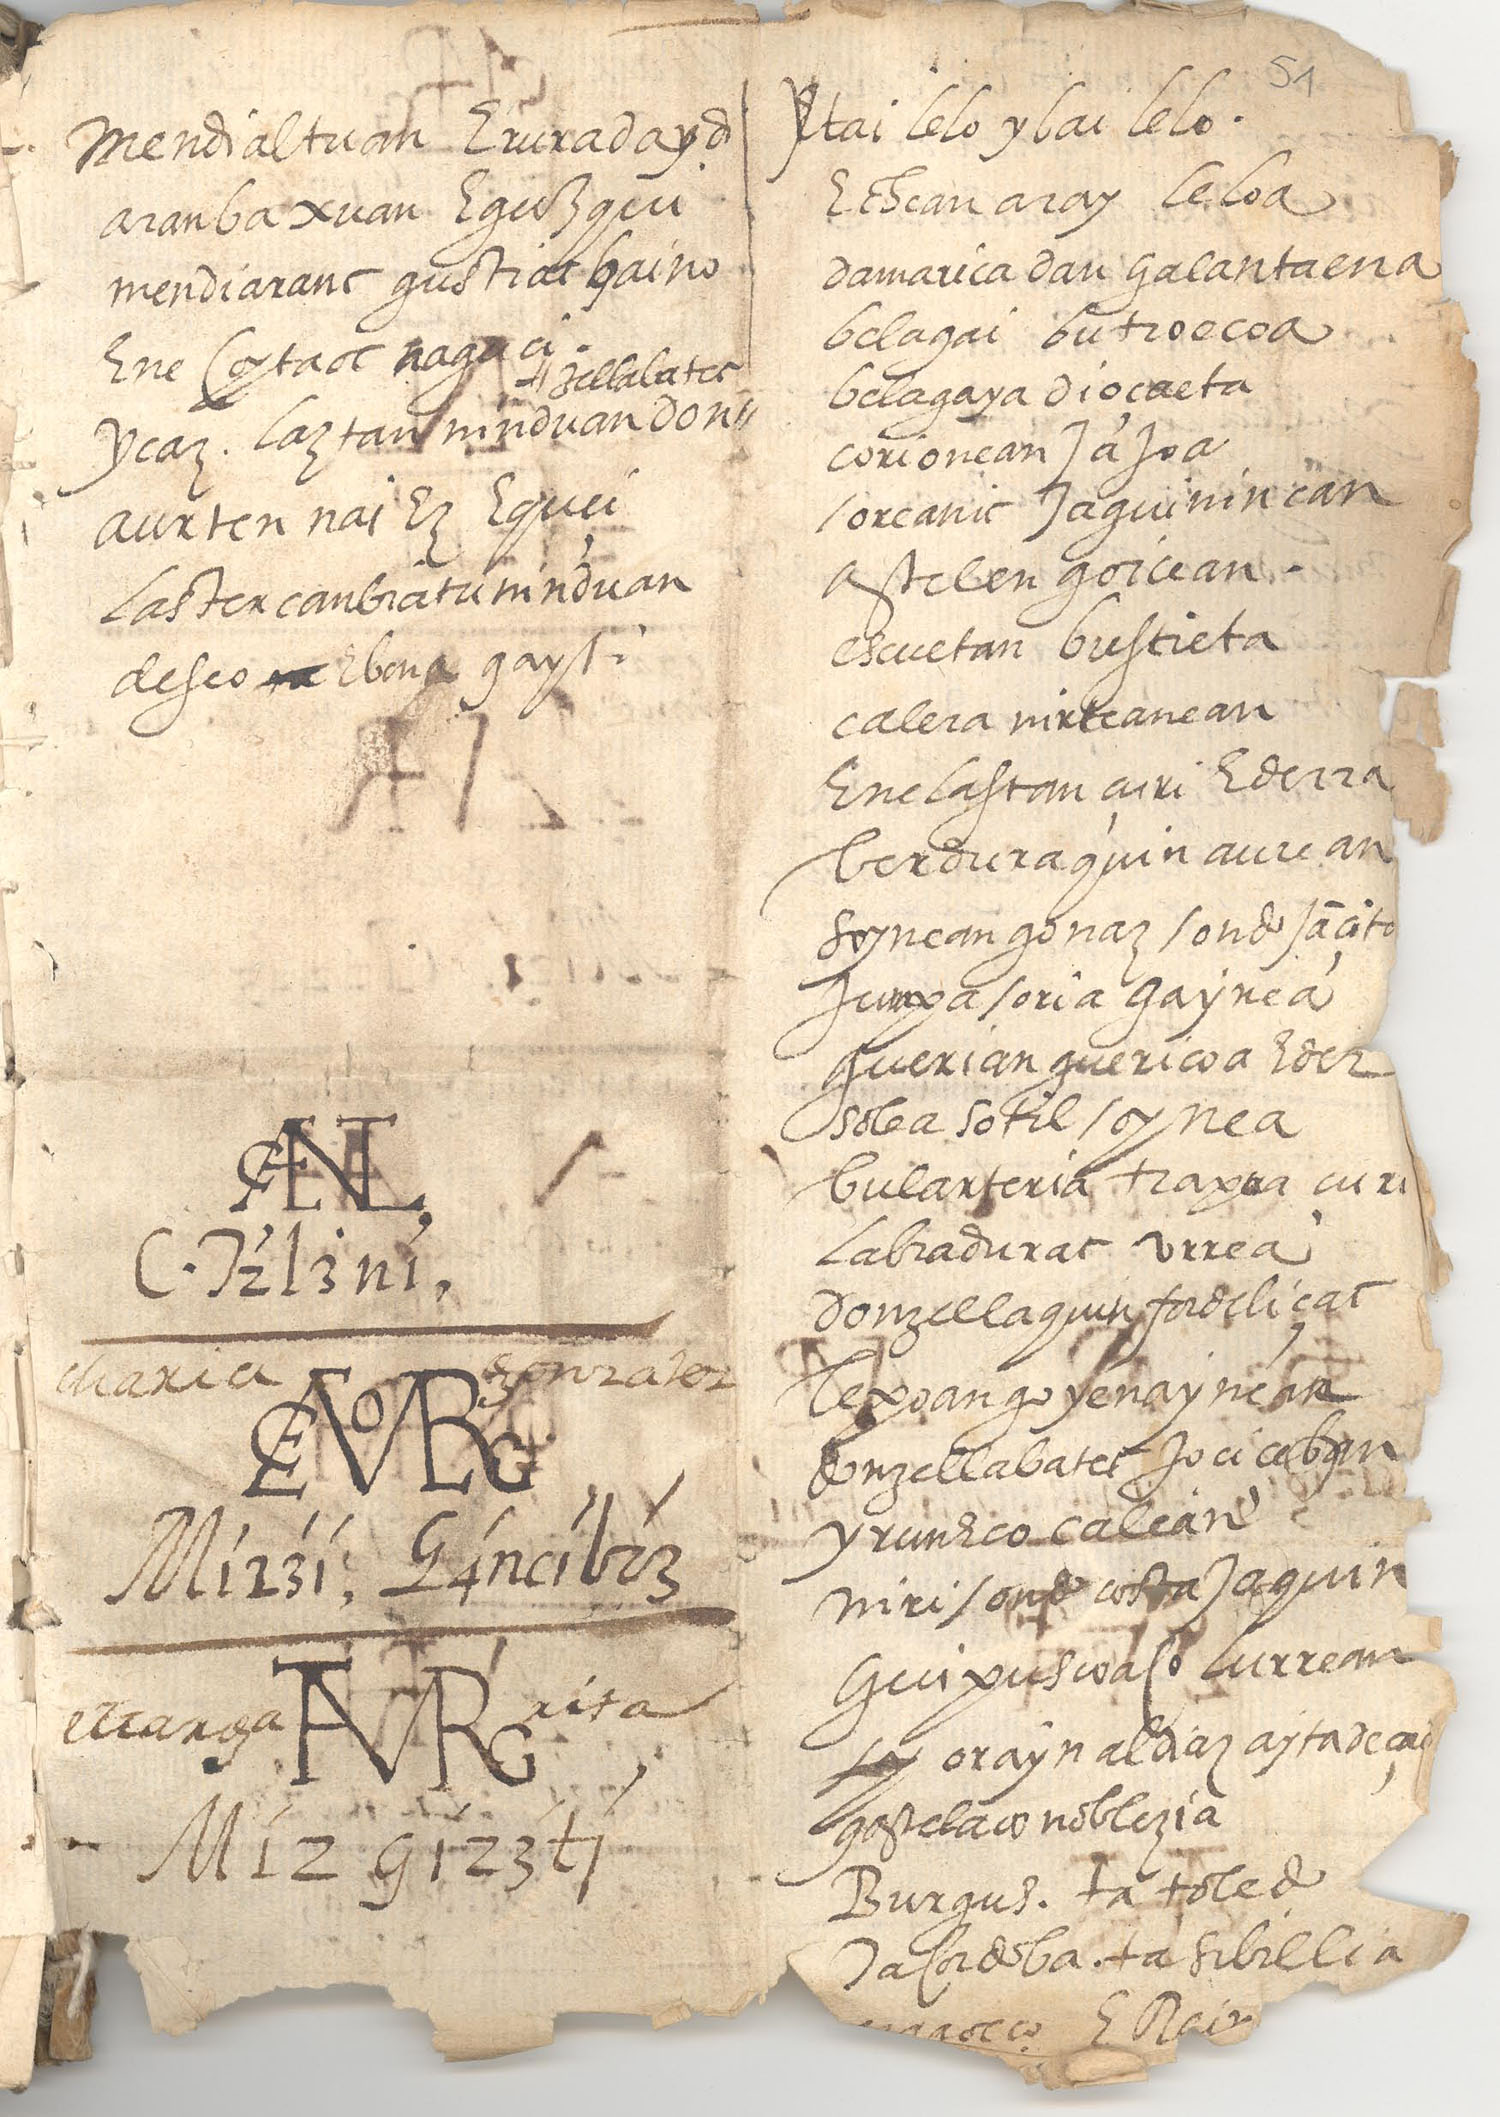 mendialtuan Erurada yd
aranbaxuan Eguzqui
mendiaranc gustiac baino
Ene Coytaoc nagaci.
zellabatec
ycaz. laztan ninduan don
aurten nai Ez Equẹi
laster canbiatu ninduan
deseo Ebena gayſ
ÆNL,
C.J2l3ni,
Maria gonzalez
M1231, G4ncíb23
marga rita
M12 g123tí
51
ytai lelo ybai lelo.
Ethean aray leloa
damarica dan galantaena
belagai butroecoa
belagaya diocaeta
corionean Ja Joa
sorcanic Jaguinincan
astelen goicean.
escuetan bustieta
calera nirteanean
Ene laſtan çuri Ederra
berduraquin aurean
soynean gonaz sonde Jaçito
Juxpa soria gaynea
guerian guericoa Eder
sobea sotil soynea
bularteria trapxa curi
labradurac vrrea
donzellaquin fordeliçac
lepoan goyenaynean
donzellabatec Joci ceban
yrunEco calean
niri sonde costa Jaquin
Guipuscoa so lurrean
oray n aldiaz aytadeçad
gastelaco noblezia
Burgus. ta toledo
Ja Cordoba. ta sibillia
E Rein